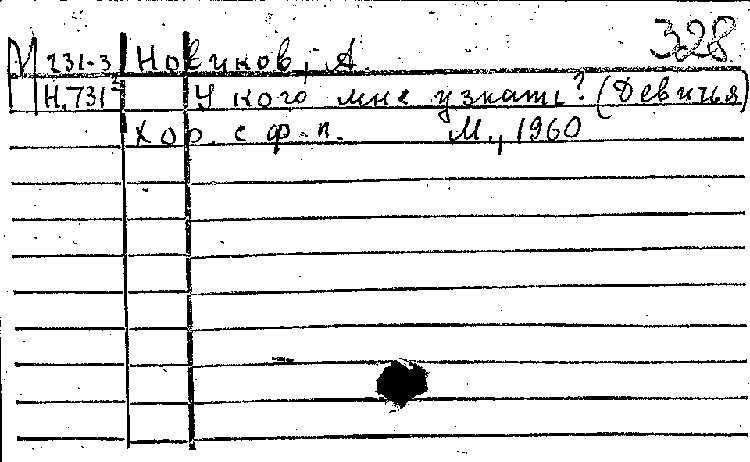 328
М 231-3 Новиков, А.
Н.731² У кого мне узнать? (Девичья)
Хор. с ф-п. М., 1960